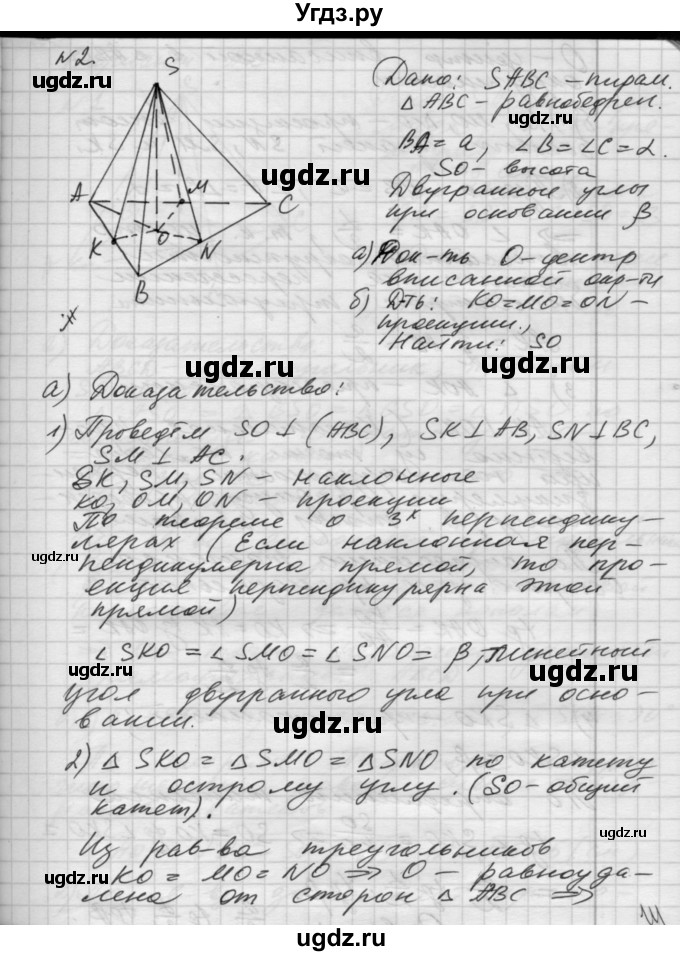 Угдз.ру
№2.
S
A
M
C
K
O
N
B
Дано: SABC – пирам.
△ABC – равнобедрен.
ugdz.ru
BA = a, ∠B = ∠C = α.
SO – высота
ugdz.ru
Двугранные углы
при основании β
а) Док-ть O – центр
вписанной окр-ти
б) Д-ть: KO = MO = ON –
проекции.,
Найти: SO
ugdz.ru
ugdz.ru
а) Доказательство:
1) Проведём SO ⊥ (ABC), SK ⊥ AB, SN ⊥ BC,
SM ⊥ AC.
ugdz.ru
SK, SM, SN – наклонные
KO, OM, ON – проекции
По теореме о 3х перпендику-
лярах (Если наклонная пер-
ugdz.ru
пендикулярна прямой, то про-
екция перпендикурярна этой
прямой)
∠SKO = ∠SMO = ∠SNO = β, линейный
ugdz.ru
ugdz.ru
угол двугранного угла при осно-
вании.
ugdz.ru
2) △SKO = △SMO = △SNO по катету
и острому углу. (SO – общий
катет).
ugdz.ru
ugdz.ru
Из рав-ва треугольников
ugdz.ru
KO = MO = NO ⇒ O – равноуда-
лена от сторон △ABC ⇒
ugdz.ru
ugdz.ru